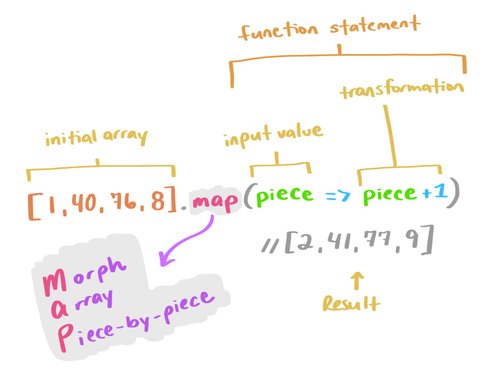 function statement
transformation
initial array
input value
[1,40,76,8].map(piece => piece+1)
//[2,41,77,9]
Morph
Array
Piece-by-piece
Result